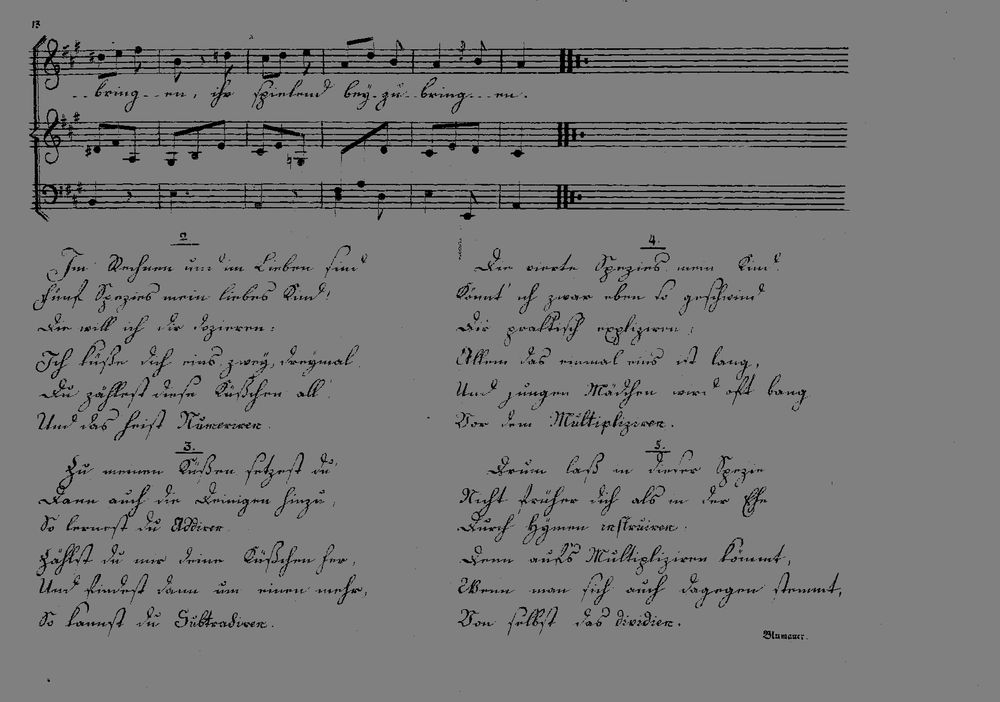 13
bring - en, ihr spielend bey - zu - bring - en.
2
Im Rechnen und im Lieben sind
Fünf Spezies mein liebes Kind!
Die will ich dir dozieren:
Ich küße dich eins, zwey, dreymal
Du zähltest diese Küßchen all
Und das heist Numeriren.
3.
Zu meinen Küßen setzest du
Dann auch die Deinigen hinzu,
So lernest du Addiren
Zählst du mir deine Küßchen her,
Und findest dann um einen mehr,
So kannst du Subtradiren.
4.
Die vierte Spezies mein Kind.
Könnt' ich zwar eben so geschwind
Dir praktisch expliziren;
Allein das einmal eins ist lang,
Und jungen Mädchen wird oft bang
Vor dem Multipliziren.
5.
Drum laß in dieser Spezie
Nicht früher dich als in der Ehe
Durch Hymen instruiren.
Denn auf's Multipliziren kömmt,
Wenn man sich auch dagegen stemmt,
Von selbst das dividien.
Blumauer.